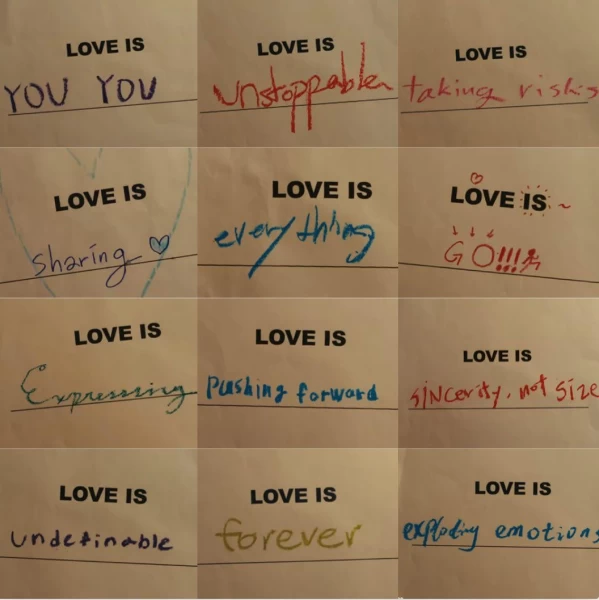 LOVE IS
YOU YOU
LOVE IS
unstoppable
LOVE IS
taking risks
LOVE IS
sharing
LOVE IS
everything
LOVE IS ~
GO!!!
LOVE IS
Expressing
LOVE IS
Pushing forward
LOVE IS
SiNcerity, not Size
LOVE IS
undefinable
LOVE IS
forever
LOVE IS
exploding emotions